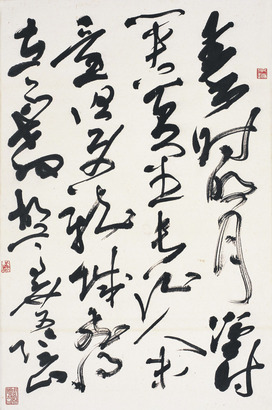 秦时明月漢时
关万里长征人未
還但使龙城飛将
在不教胡马度阴山